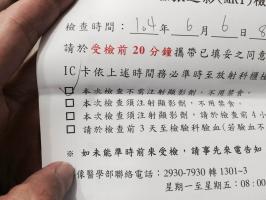 (MRI)檢
檢查時間：104年6月6日8
請於受檢前20分鐘攜帶已填妥之同意
IC卡依上述時間務必準時至放射科櫃檯
本次檢查不需注射顯影劑，不用禁食。
本次檢查須注射顯影劑，不用禁食。
本次檢查須注射顯影劑，請於檢查前4小
請於檢查前3天至檢驗科驗血(若驗血不
※ 如未能準時前來受檢，請事先來電告知
像醫學部聯絡電話：2930-7930 轉1301~3
星期一至星期五：08：00